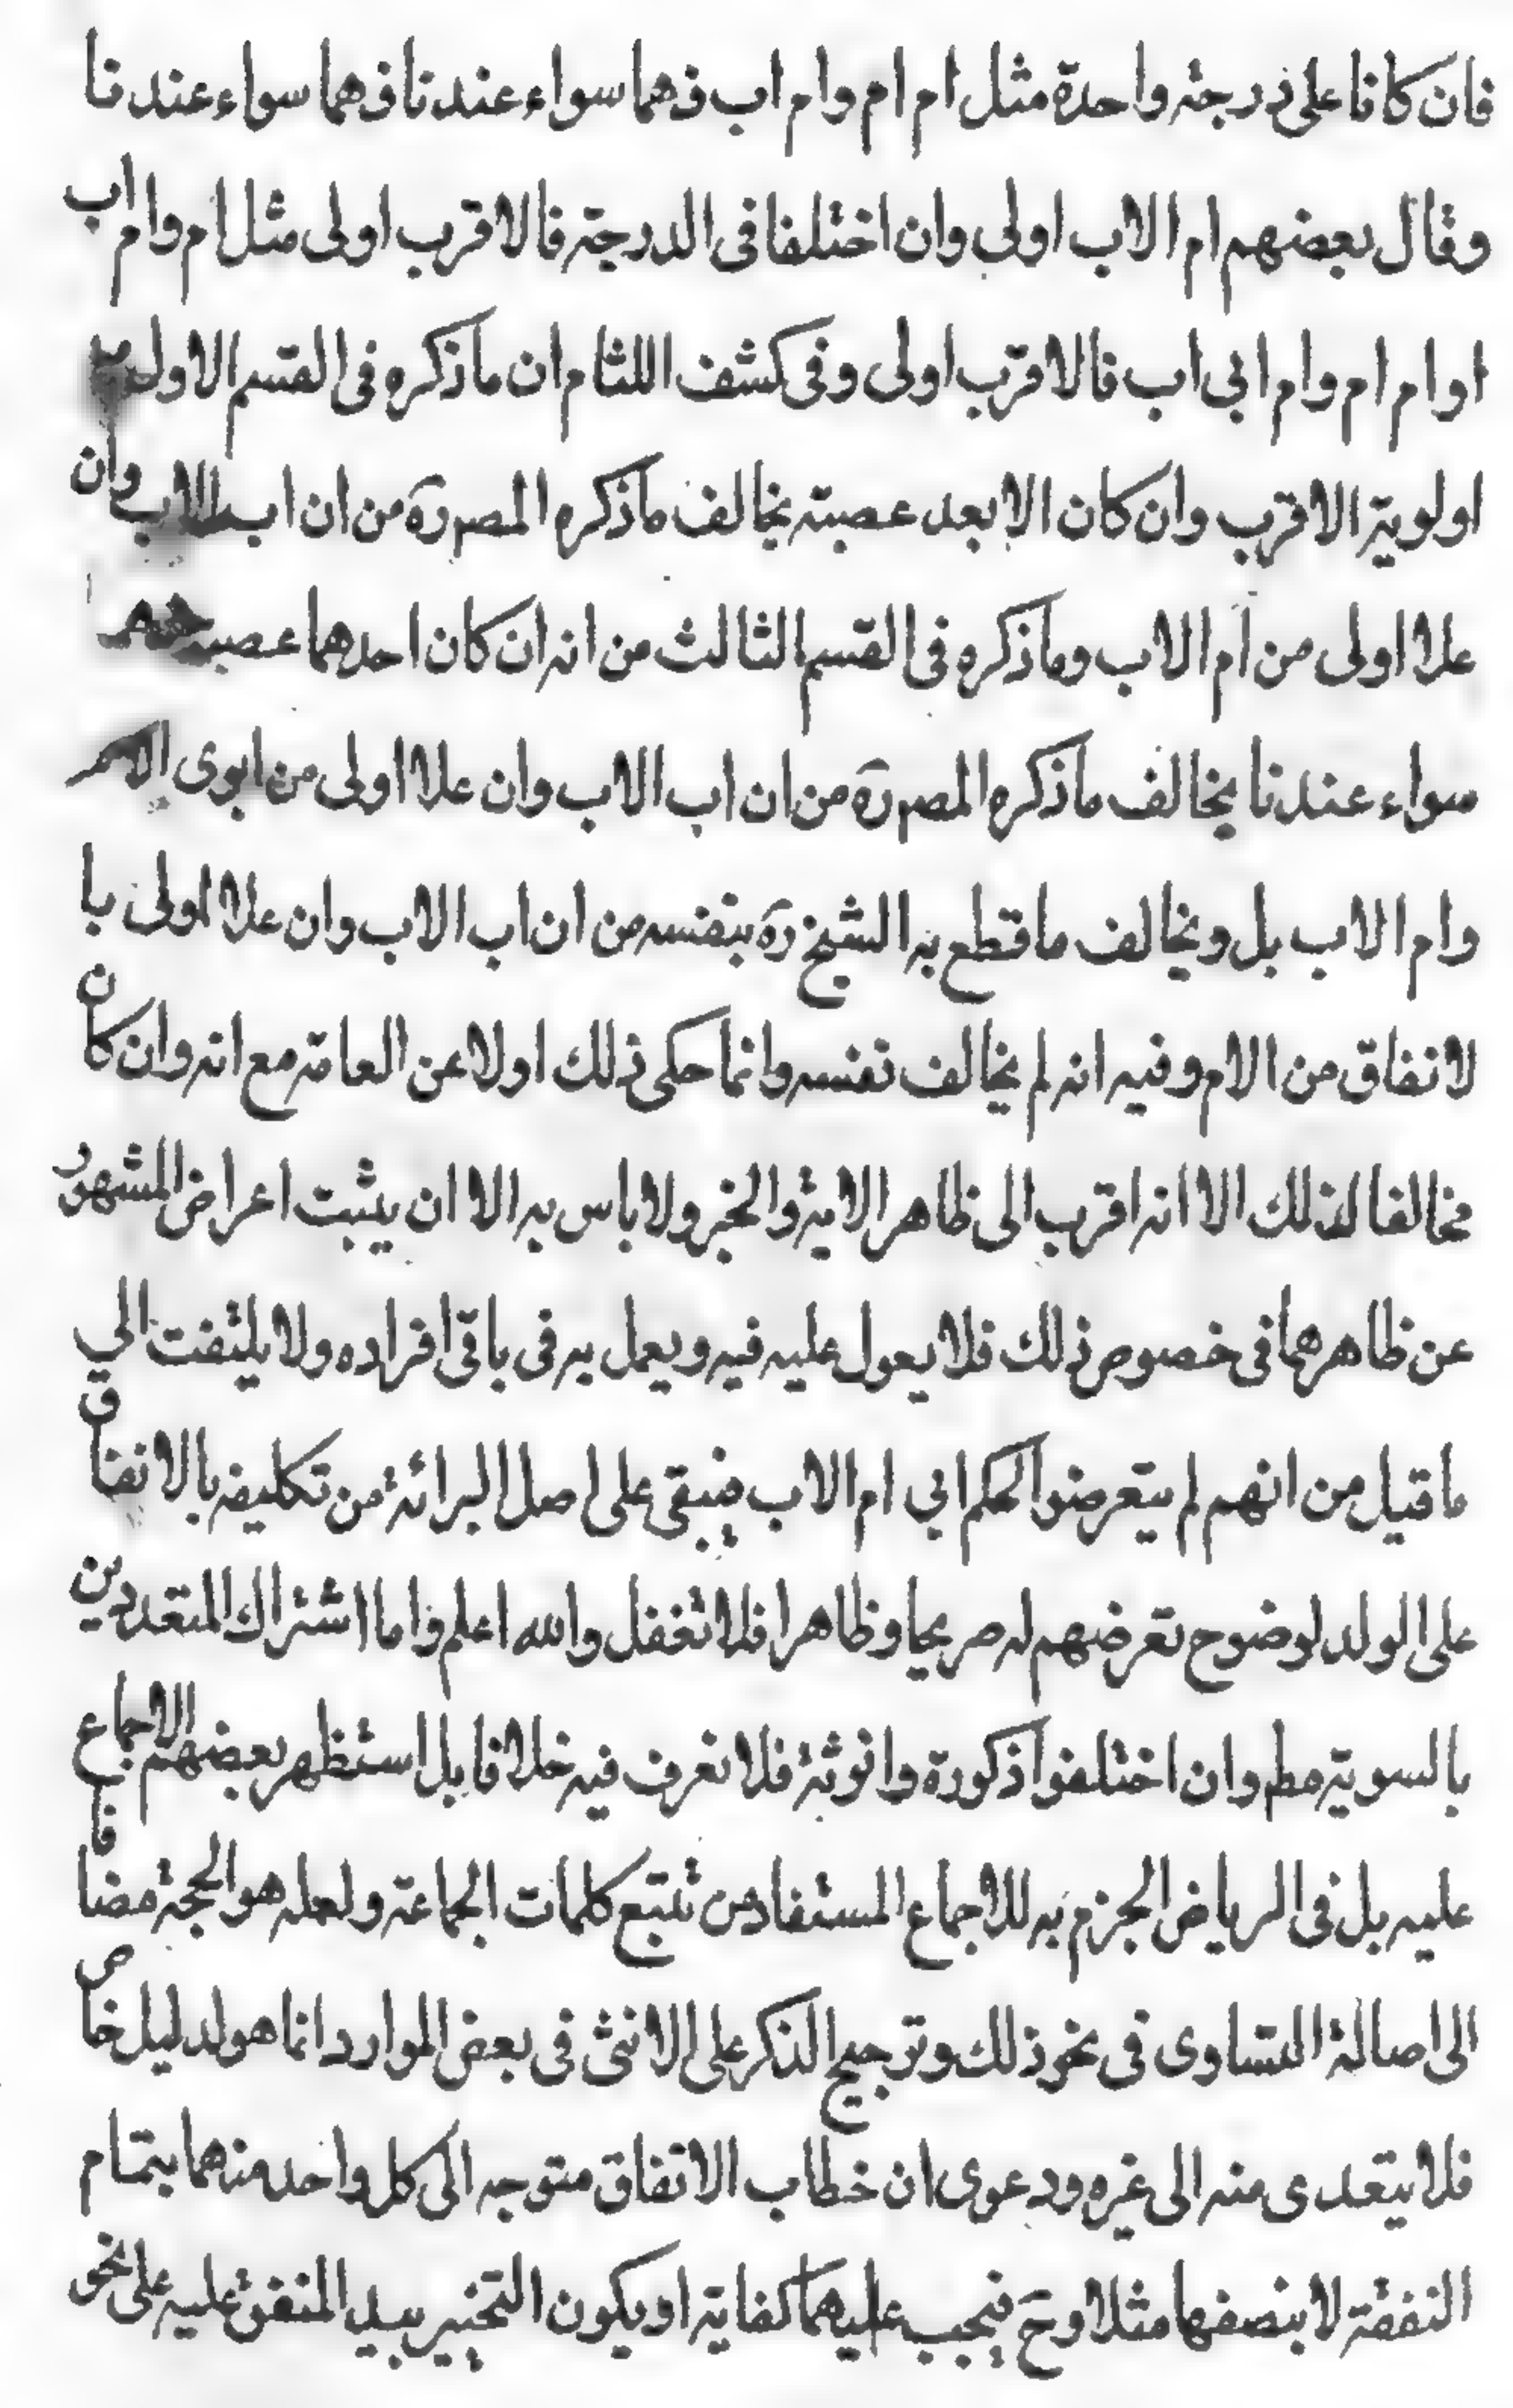 فان كانا على درجة واحدة مثل ام ام وام اب فهما سواء عندنا فهما سواء عندنا
وقال بعضهم ام الاب اولى وان اختلفا فى الدرجة فالاقرب اولى مثل ام وام اب
او ام ام وام ابي اب فالاقرب اولى وفى كشف اللثام ان ماذكره فى القسم الاول من
اولوية الاقرب وان كان الابعد عصبته يخالف ماذكره المصره من ان اب الاب وان
علا اولى من ام الاب وماذكره فى القسم الثالث من انه ان كان احدهما عصبة فهما
سواء عندنا يخالف ماذكره المصره من ان اب الاب وان علا اولى من ابوى الام
وام الاب بل ويخالف ماقطع به الشيخ ره بنفسه من ان اب الاب وان علا اولى با
لانفاق من الام وفيه انه لم يخالف نفسه وانما حكى ذلك اولا عن العامة مع انه وان كان
مخالفا لذلك الا انه اقرب الى ظاهر الاية والخبر ولا باس به الا ان يثبت اعراض المشهور
عن ظاهرهما فى خصوص ذلك فلا يعول عليه فيه ويعمل به فى باقى افراده ولا يلتفت الي
ماقيل من انهم لم يتعرضوا لحكم ابي ام الاب فيبقى على اصل البرائة من تكليفه بالانفاق
على الولد لوضوح تعرضهم له صريحا وظاهرا فلا تغفل والله اعلم واما اشتراك المتعددين
بالسوية مطه وان اختلفوا ذكورة وانوثة فلا نعرف فيه خلافا بل استظهر بعضهم الاجماع
عليه بل فى الرياض الجزم به للاجماع المستفاد من تتبع كلمات الجماعة ولعله هو الحجة مضافا
الى اصالة التساوى فى نحو ذلك وترجيح الذكر على الانثى فى بعض الموارد انما هو لدليل خاص
فلا يتعدى منه الى غيره ودعوى ان خطاب الانفاق متوجه الى كل واحد منهما بتمام
النفقة لا بنصفها مثلا وح فيجب عليهما كفاية او يكون التخيير بيد المنفق عليه على نحو